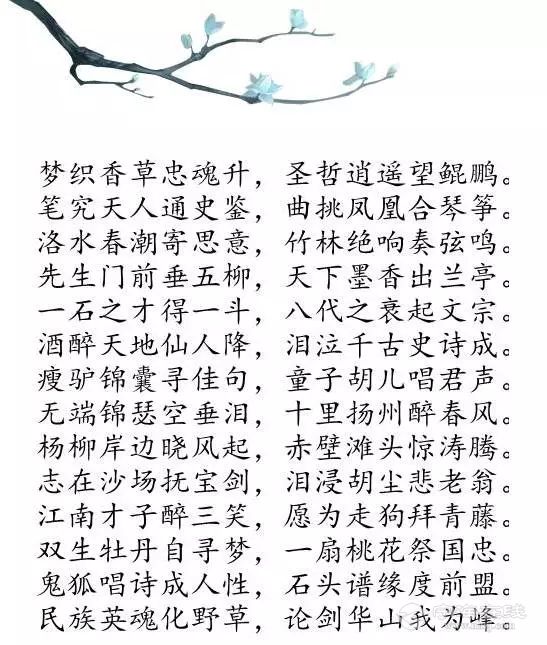 梦织香草忠魂升，圣哲逍遥望鲲鹏。
笔究天人通史鉴，曲挑凤凰合琴筝。
洛水春潮寄思意，竹林绝响奏弦鸣。
先生门前垂五柳，天下墨香出兰亭。
一石之才得一斗，八代之衰起文宗。
酒醉天地仙人降，泪泣千古史诗成。
瘦驴锦囊寻佳句，童子胡儿唱君声。
无端锦瑟空垂泪，十里扬州醉春风。
杨柳岸边晓风起，赤壁滩头惊涛腾。
志在沙场抚宝剑，泪浸胡尘悲老翁。
江南才子醉三笑，愿为走狗拜青藤。
双生牡丹自寻梦，一扇桃花祭国忠。
鬼狐唱诗成人性，石头谱缘度前盟。
民族英魂化野草，论剑华山我为峰。